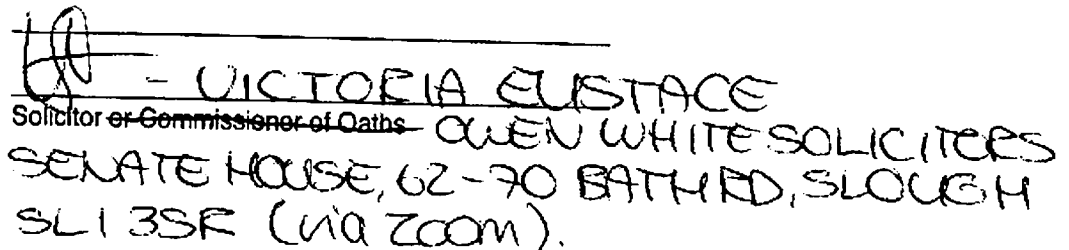 - VICTORIA EUSTACE
Solicitor or Commissioner of Oaths OWEN WHITE SOLICITORS
SENATE HOUSE, 62-70 BATH RD, SLOUGH
SL1 3SR (via zoom).